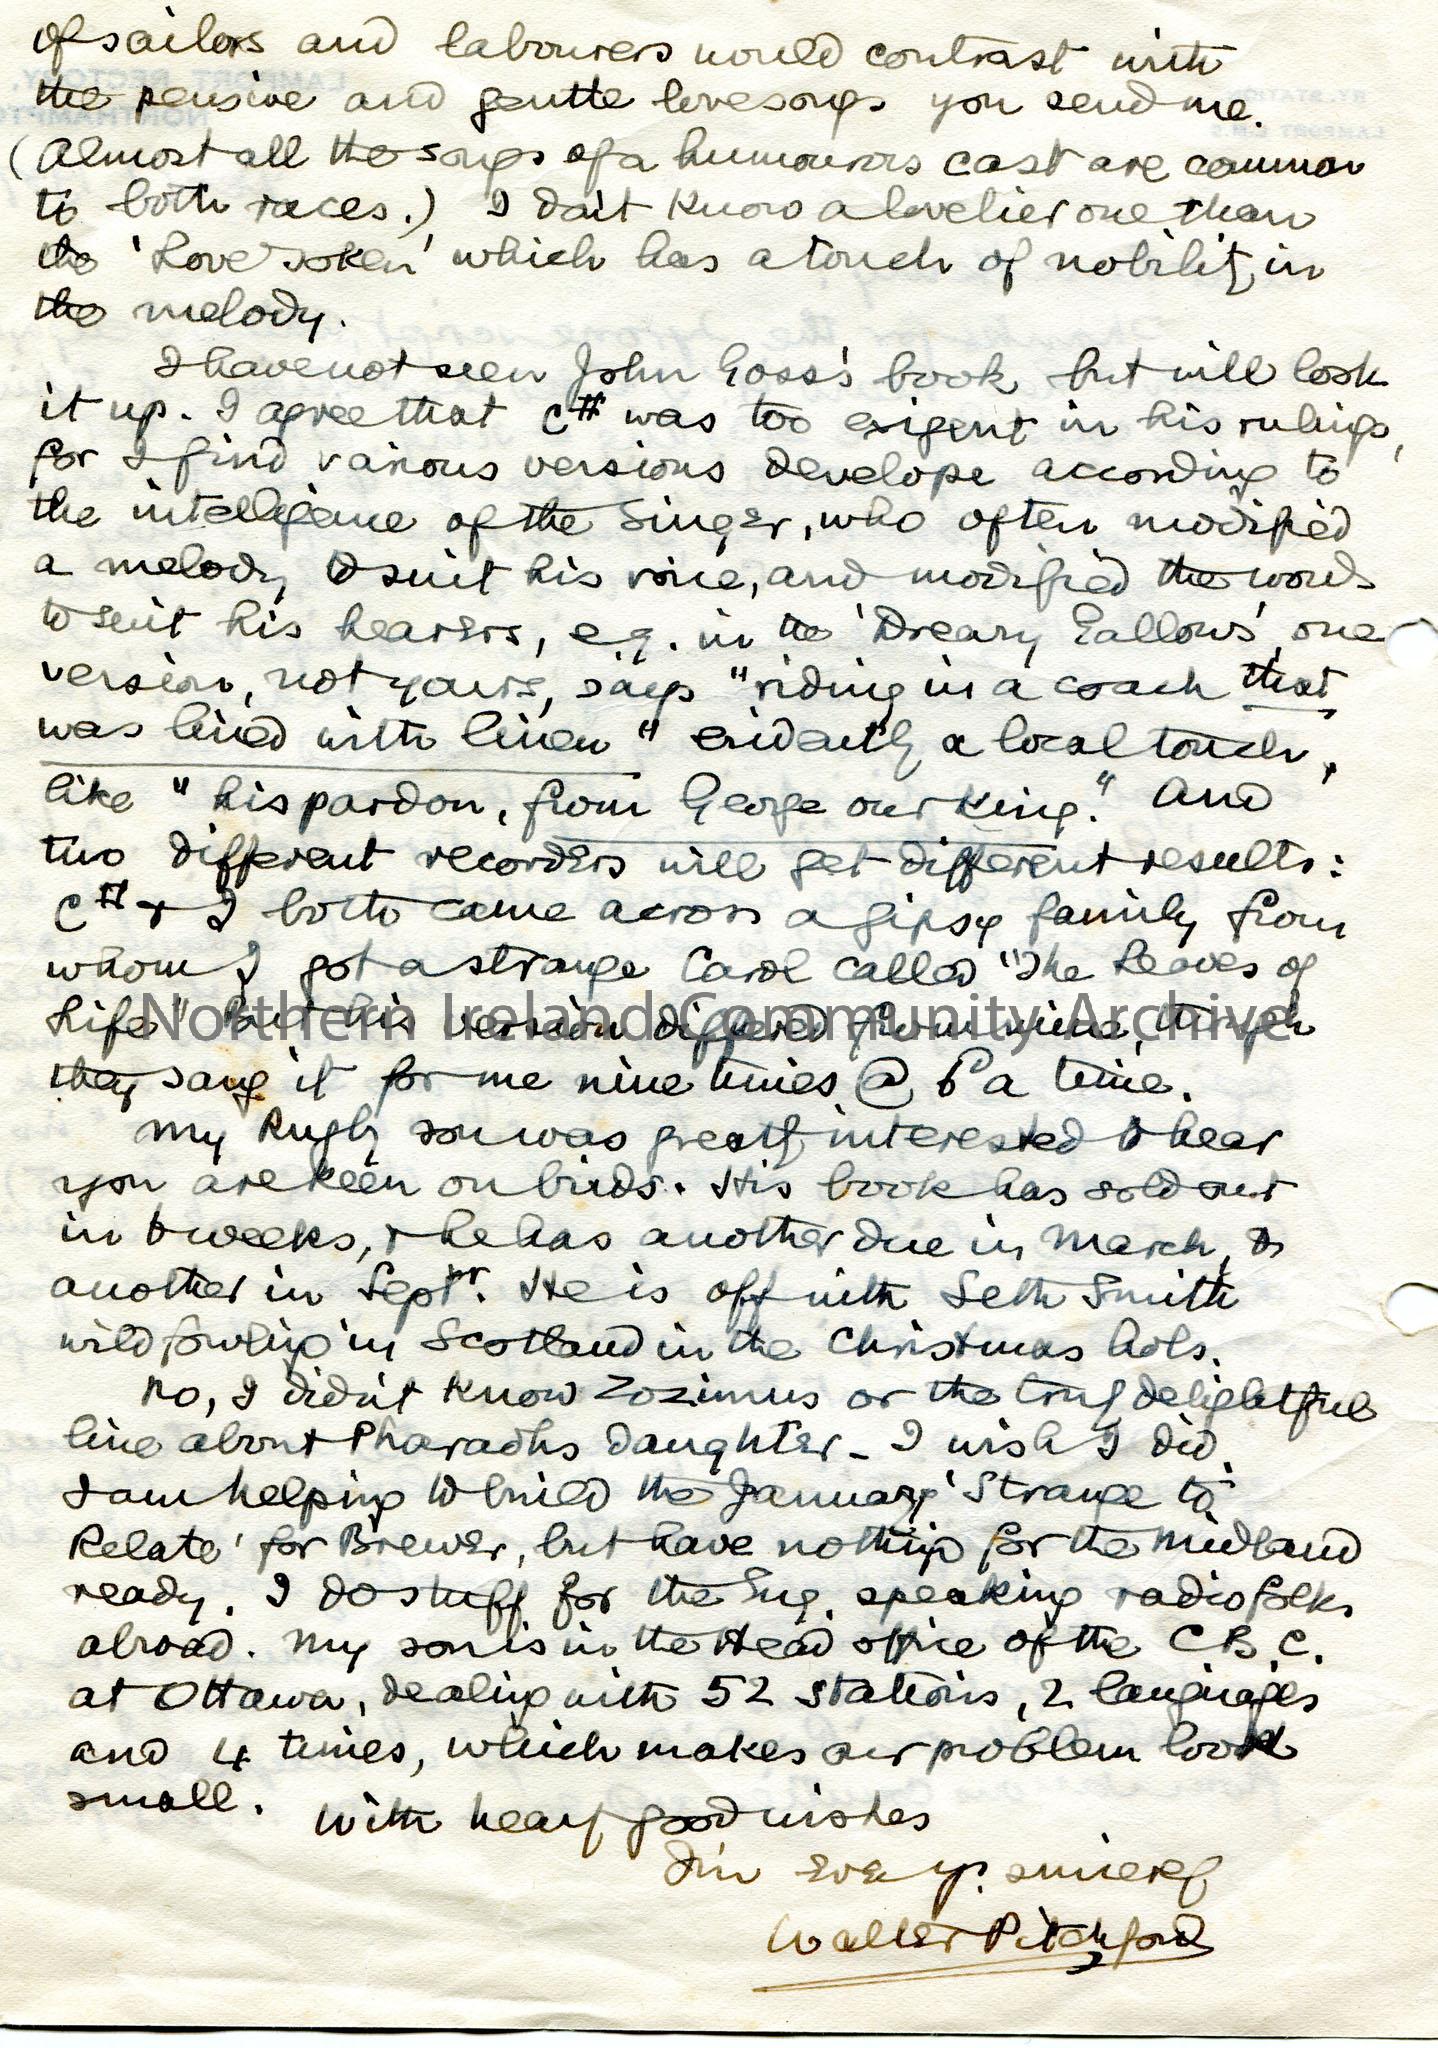 of sailors and labourers would contrast with
the pensive and gentle lovesongs you send me.
(Almost all the songs of a humourous cast are common
to both races.) I don't know a lovelier one than
the 'Love Token' which has a touch of nobility in
the melody.
I have not seen John Goss's book but will look
it up. I agree that C# was too exigent in his rulings,
for I find various versions develope according to
the intelligence of the singer, who often modified
a melody to suit his voice, and modified the words
to suit his hearers, e.g. in the 'Dreary Gallows', one
version, not yours, says "riding in a coach that
was lined with linen" evidently a local touch,
like "his pardon, from George our King." And
two different recorders will get different results:
C# & I both came across a gipsy family from
whom I got a strange Carol called "The Leaves of
Life" But his version differed from mine, though
they sang it for me nine times @ 6d a time.
My Rugby son was greatly interested to hear
you are keen on birds. His book has sold out
in 6 weeks, & he has another due in March, &
another in Septbr. He is off with Seth Smith
wildfowling in Scotland in the Christmas hols.
No, I didn't know Zozimus or the truly delightful
line about Pharaohs daughter - I wish I did.
I am helping to build the January 'Strange to
Relate' for Brewer, but have nothing for the Midland
ready. I do stuff for the Eng. speaking radio folks
abroad. My son is in the Head office of the C.B.C.
at Ottawa, dealing with 52 stations, 2 languages
and 4 times, which makes our problem look
small. With hearty good wishes
I'm ever yr. sincerely
Walter Pitchford
LAMPORT RECTORY,
NORTHAMPTON
RY. STATION
LAMPORT L.M.S.
Northern Ireland Community Archive